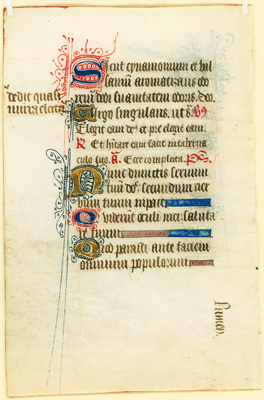 Sicut cynamomum et bal
samum aromatizans odo
rem dedi suavitatem odoris. deo.
Virgo singularis.
Elegit eam deus et pre elegit eam.
R Et habitare eam facit in taberna
culo suo. A. Ecce completa. Ps.
Nunc dimittis servum
tuum domine secundum ver
bum tuum in pace
Quia viderunt oculi mei saluta
re tuum
Quod parasti ante faciem
omnium populorum
dedit quasi
mirra electa
Lumen